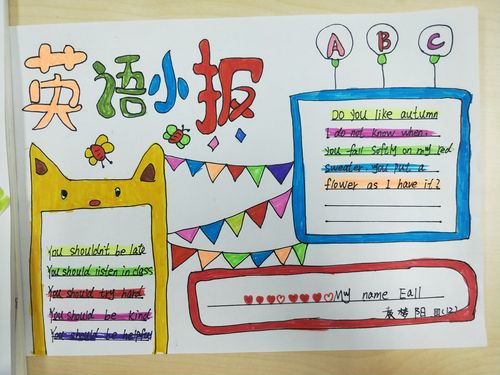 英语小报
A B C
Do you like autumn
I do not know when
You fall softly on my red
sweater You put a
flower as I have it?
You shouldn't be late
You should listen in class
You should try hard
You should be kind
You should be helpful
My name Eall
四(2)